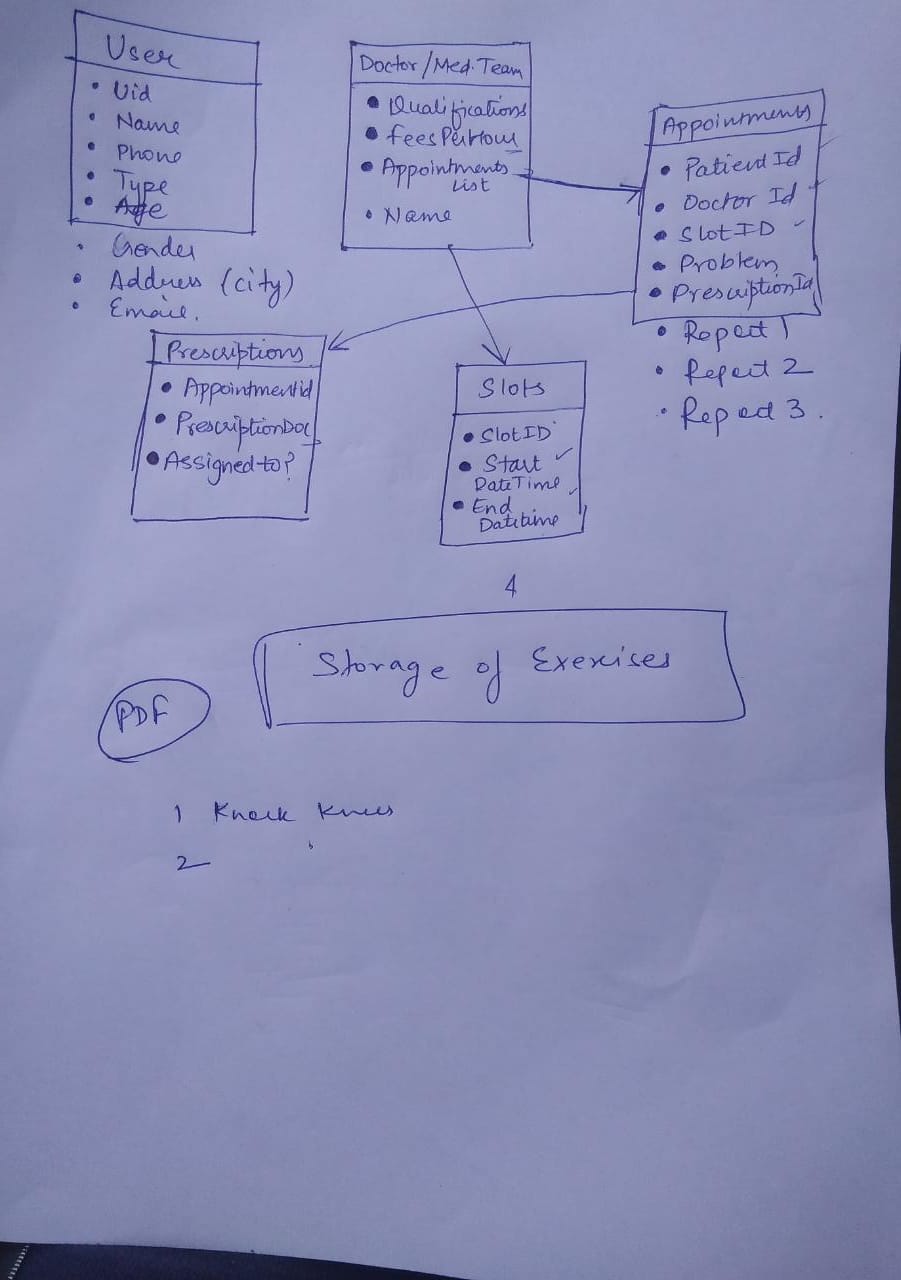 User
• Uid
• Name
• Phone
• Type
• Age
• Gender
• Address (city)
• Email.
Doctor/Med. Team
• Qualifications
• Fees Per Hour
• Appointments
List
• Name
Appointments
• Patient Id
• Doctor Id
• Slot ID
• Problem
• Prescription Id
• Report 1
• Report 2
• Report 3.
Prescriptions
• Appointmentid
• PrescriptionDoc
• Assigned to?
Slots
• Slot ID
• Start
DateTime
• End
Datetime
4
Storage of Exercises
PDF
1 Knock Knees
2